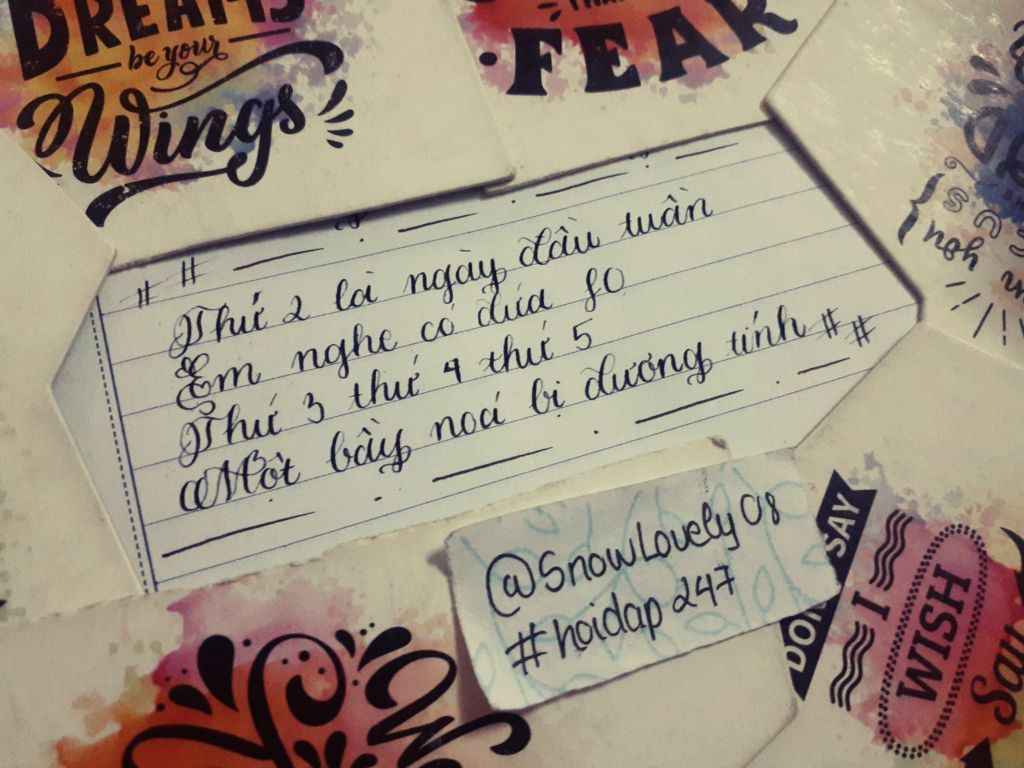 DREAMS
be your
Wings
THAN
FEAR
# #
Thứ 2 là ngày đầu tuần
Em nghe có đứa f0
Thứ 3 thứ 4 thứ 5
Một bầy noá bị dương tính # #
@SnowLovely08
#hoidap247
DON'T SAY
I
WISH
Say